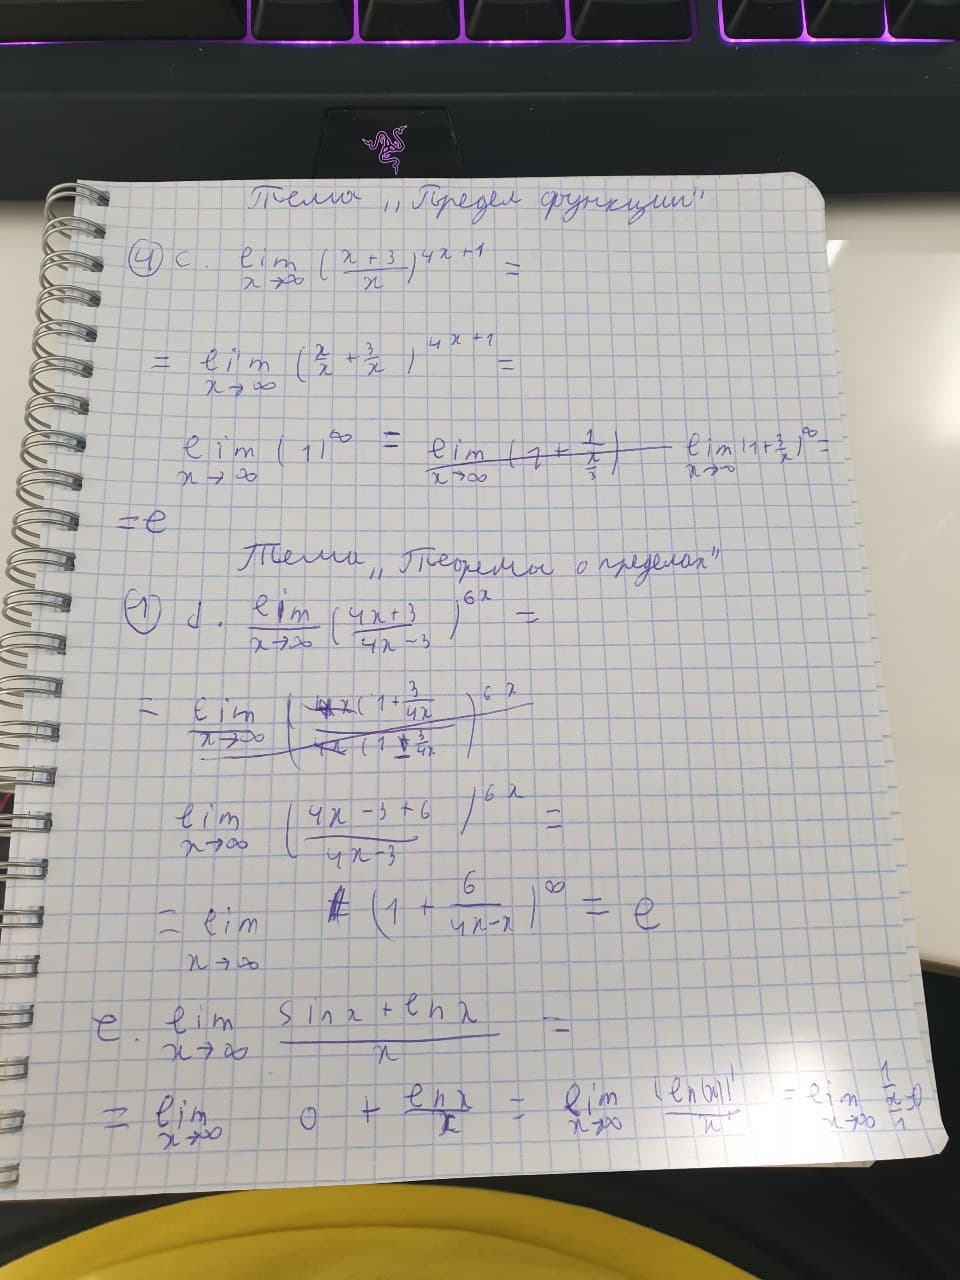 Тема „Предел функции"
④ c. lim x→∞ (x+3/x)^4x+1 =
= lim x→∞ (x/x + 3/x)^4x+1 =
lim x→∞ (1)^∞ = lim x→∞ (1 + 1/x/3) lim x→∞ (1+3/x)^∞ =
= e
Тема „Теоремы о пределах"
① d. lim x→∞ (4x+3/4x-3)^6x =
= lim x→∞ (4x(1+3/4x)/4x(1-3/4x))^6x
lim x→∞ (4x-3+6/4x-3)^6x =
= lim x→∞ (1 + 6/4x-x)^∞ = e
e. lim x→∞ sinx+lnx/x =
= lim x→∞ 0 + lnx/x = lim x→∞ (ln(x))'/x' = lim x→∞ 1/x/1 = 0